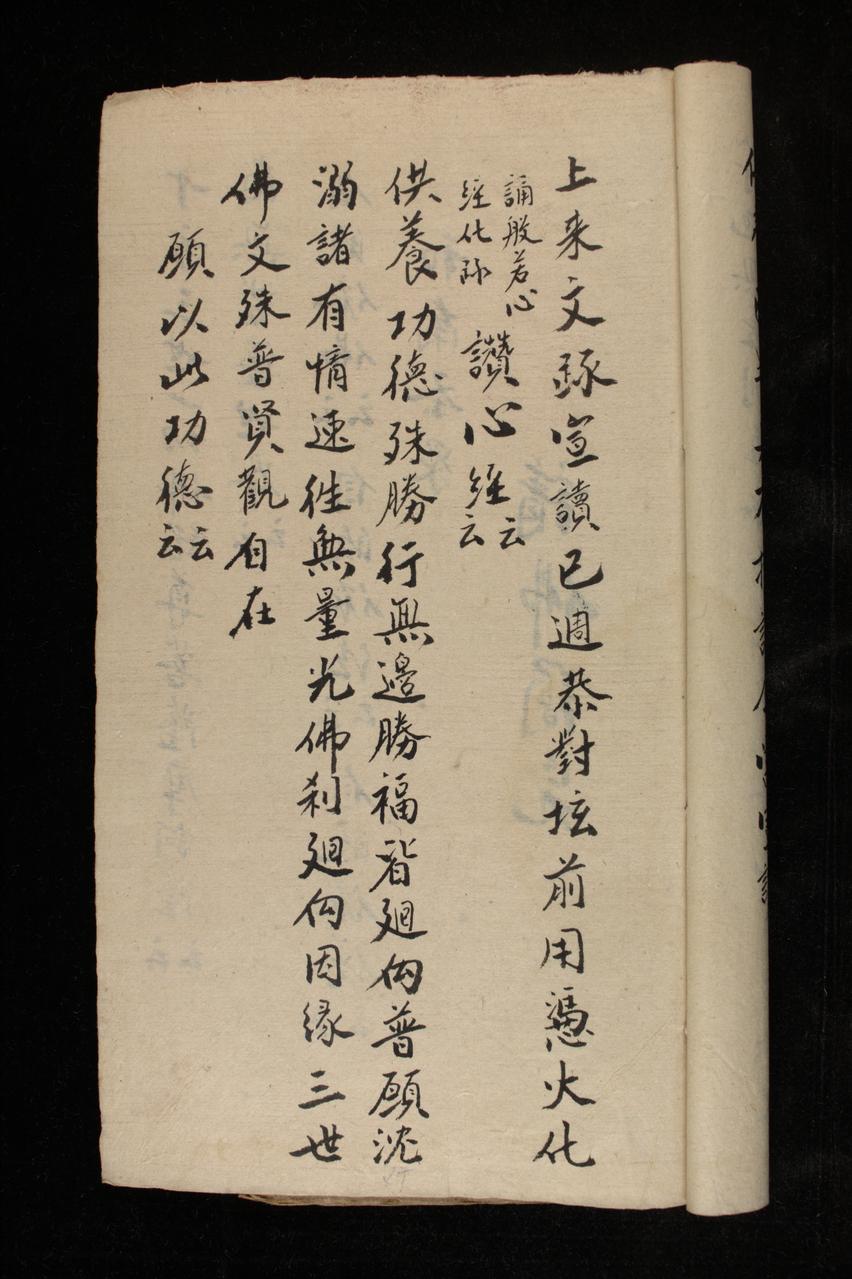 上来文疏宣讀已週恭對坛前用憑火化
誦般若心
經化疏
讚心經云云
供養功德殊勝行無邉勝福皆廻向普願沈
溺諸有情速徃無量光佛刹廻向因緣三世
佛文殊普贤觀自在
願以此功德云云